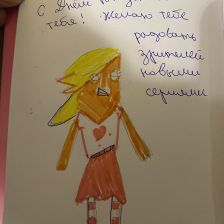 С Днём
тебя! Желаю тебе
радовать
зрителей
новыми
сериями